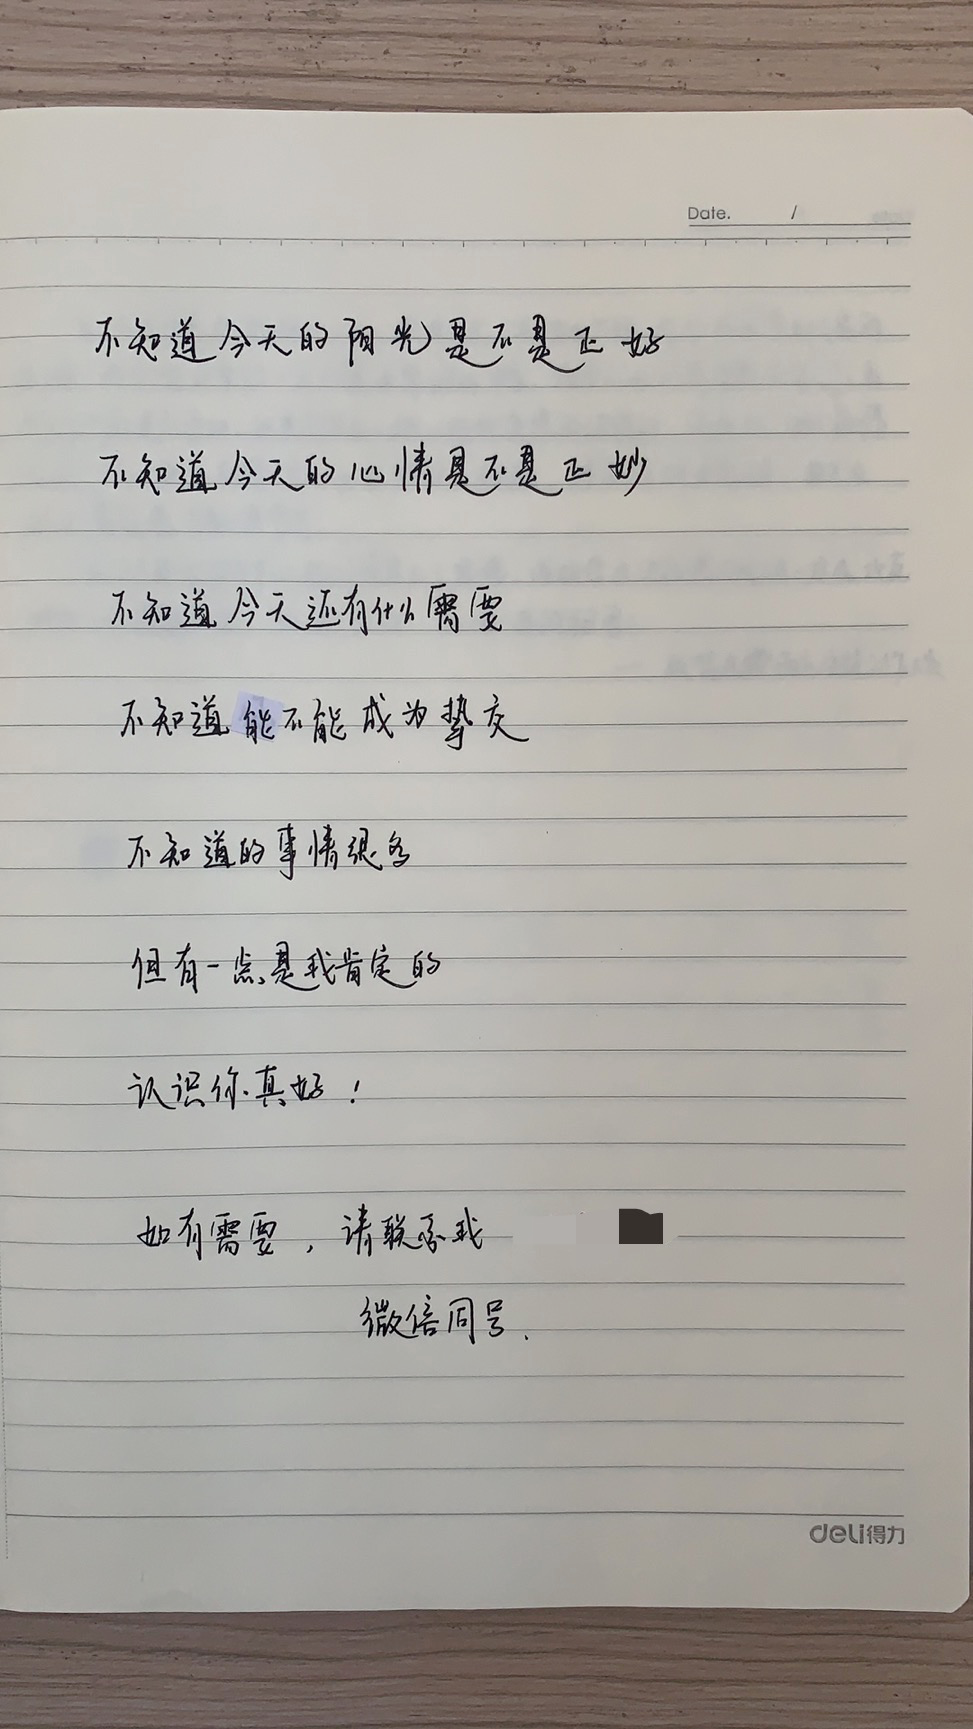 Date. /
不知道今天的阳光是不是正好
不知道今天的心情是不是正妙
不知道今天还有什么需要
不知道能不能成为挚交
不知道的事情很多
但有一点是我肯定的
认识你真好！
如有需要，请联系我
微信同号.
deli得力